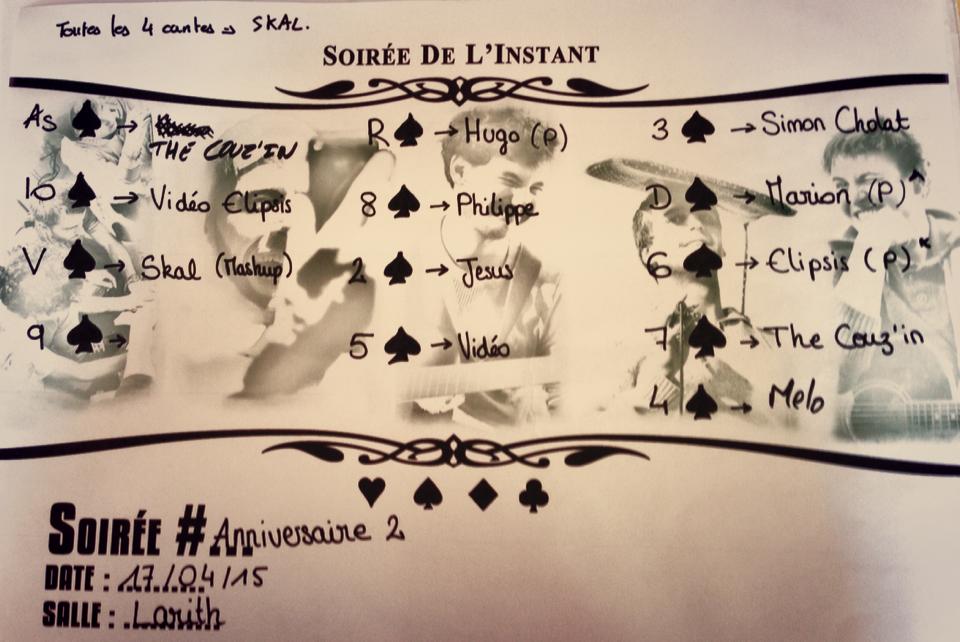 Toutes les 4 cartes => SKAL.
SOIRÉE DE L'INSTANT
As ♠ → THE COUZ'IN
10 ♠ → Vidéo Elipsis
V ♠ → Skal (Mashup)
9 ♠ →
R ♠ → Hugo (P)
8 ♠ → Philippe
2 ♠ → Jesus
5 ♠ → Vidéo
3 ♠ → Simon Cholat
D ♠ → Marion (P)
6 ♠ → Elipsis (P)*
7 ♠ → The Couz'in
4 ♠ → Melo
♥ ♠ ♦ ♣
SOIRÉE # Anniversaire 2
DATE : 17/04/15
SALLE : Larith